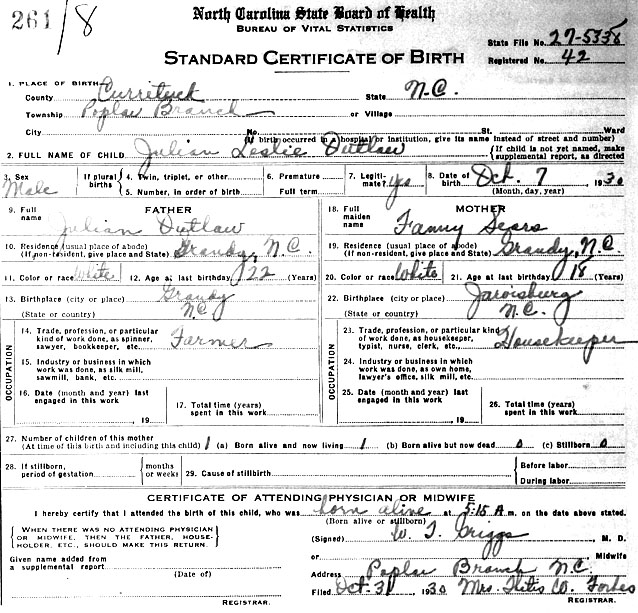 261/8
North Carolina State Board of Health
BUREAU OF VITAL STATISTICS
State File No. 27-5338
STANDARD CERTIFICATE OF BIRTH
Registered No. 42
1. PLACE OF BIRTH
County Currituck State N.C.
Township Poplar Branch or Village
City No. St. Ward
(If birth occurred in a hospital or institution, give its name instead of street and number)
2. FULL NAME OF CHILD Julian Leslie Outlaw {If child is not yet named, make supplemental report, as directed
3. Sex Male If plural births 4. Twin, triplet, or other 5. Number, in order of birth 6. Premature Full term 7. Legitimate? Yes 8. Date of birth Oct. 7 1930 (Month, day, year)
FATHER
9. Full name Julian Outlaw
10. Residence (usual place of abode) (If non-resident, give place and State) Grandy, N.C.
11. Color or race White 12. Age at last birthday 22 (Years)
13. Birthplace (city or place) Grandy
(State or country) N.C.
OCCUPATION
14. Trade, profession, or particular kind of work done, as spinner, sawyer, bookkeeper, etc. Farmer
15. Industry or business in which work was done, as silk mill, sawmill, bank, etc.
16. Date (month and year) last engaged in this work , 19
17. Total time (years) spent in this work
MOTHER
18. Full maiden name Fanny Sears
19. Residence (usual place of abode) (If non-resident, give place and State) Grandy, N.C.
20. Color or race White 21. Age at last birthday 18 (Years)
22. Birthplace (city or place) Jarvisburg
(State or country) N.C.
OCCUPATION
23. Trade, profession, or particular kind of work done, as housekeeper, typist, nurse, clerk, etc. Housekeeper
24. Industry or business in which work was done, as own home, lawyer's office, silk mill, etc.
25. Date (month and year) last engaged in this work , 19
26. Total time (years) spent in this work
27. Number of children of this mother (At time of this birth and including this child) 1 (a) Born alive and now living 1 (b) Born alive but now dead 0 (c) Stillborn 0
28. If stillborn, period of gestation {months or weeks 29. Cause of stillbirth {Before labor During labor
CERTIFICATE OF ATTENDING PHYSICIAN OR MIDWIFE
I hereby certify that I attended the birth of this child, who was born alive at 5:15 A m. on the date above stated.
(Born alive or stillborn)
{WHEN THERE WAS NO ATTENDING PHYSICIAN OR MIDWIFE, THEN THE FATHER, HOUSEHOLDER, ETC., SHOULD MAKE THIS RETURN.}
(Signed) W. T. Griggs M. D.
or Midwife
Given name added from a supplemental report
(Date of)
Address Poplar Branch N.C.
Filed Oct-31 1930 Mrs. W. Forbes
REGISTRAR. REGISTRAR.